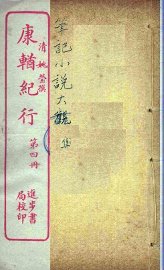 筆記小説大觀
清姚瑩撰
康輶紀行
第四冊
進步書局校印